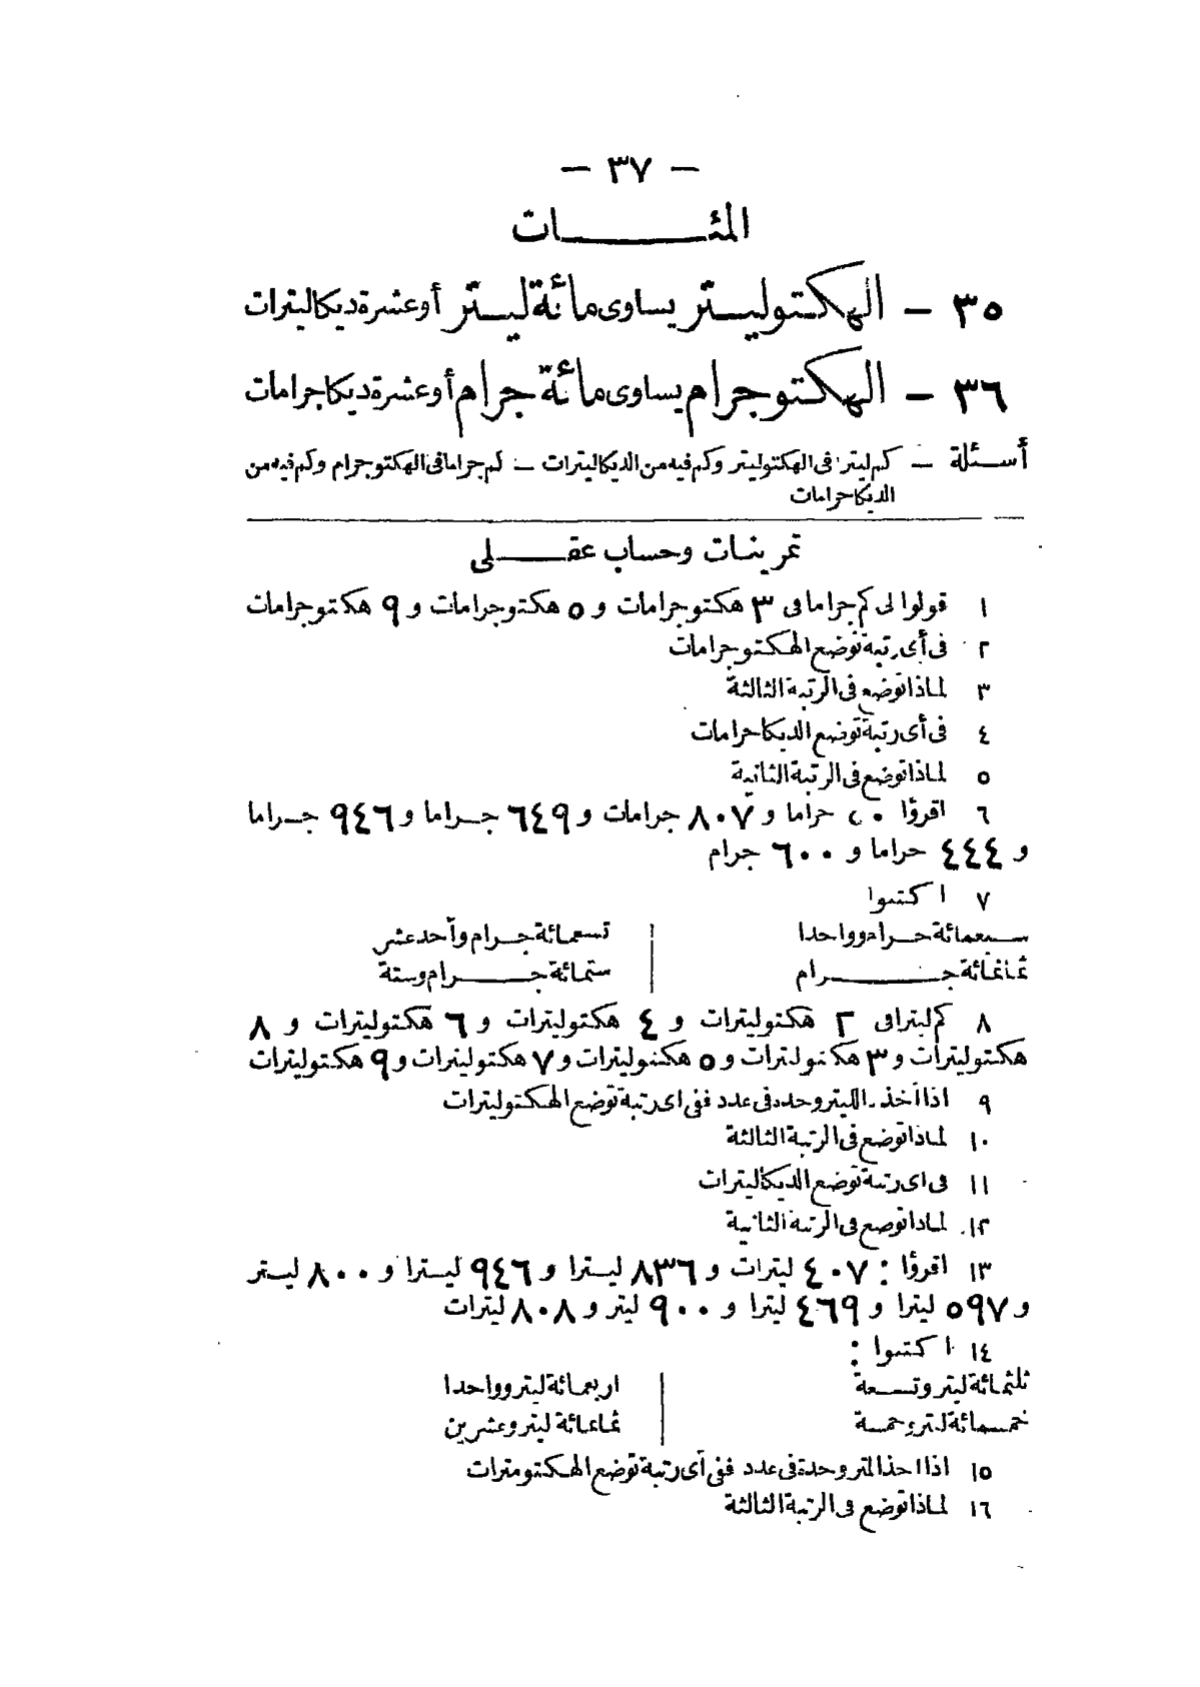 — ٣٧ —
المئات
٣٥ — الهكتوليتر يساوى مائة ليتر أو عشرة ديكاليترات
٣٦ — الهكتوجرام يساوى مائة جرام أو عشرة ديكاجرامات
أسئلة — كم ليترا فى الهكتوليتر وكم فيه من الديكاليترات — كم جراما فى الهكتوجرام وكم فيه من
الديكاجرامات
تمرينات وحساب عقلى
١ قولوا لى كم جراما فى ٣ هكتوجرامات و ٥ هكتوجرامات و ٩ هكتوجرامات
٢ فى أى رتبة توضع الهكتوجرامات
٣ لماذا توضع فى الرتبة الثالثة
٤ فى أى رتبة توضع الديكاجرامات
٥ لماذا توضع فى الرتبة الثانية
٦ اقرؤا جراما و ٨٠٧ جرامات و ٦٤٩ جراما و ٩٤٦ جراما
و ٤٤٤ جراما و ٦٠٠ جرام
٧ اكتبوا
سبعمائة جرام وواحدا | تسعمائة جرام وأحد عشر
ثمانمائة جرام | ستمائة جرام وستة
٨ كم ليترا فى ٢ هكتوليترات و ٤ هكتوليترات و ٦ هكتوليترات و ٨
هكتوليترات و ٣ هكتوليترات و ٥ هكتوليترات و ٧ هكتوليترات و ٩ هكتوليترات
٩ اذا أخذ الليتر وحده فى عدد ففى اى رتبة توضع الهكتوليترات
١٠ لماذا توضع فى الرتبة الثالثة
١١ فى اى رتبة توضع الديكاليترات
١٢ لماذا توضع فى الرتبة الثانية
١٣ اقرؤا : ٤٠٧ ليترات و ٨٣٦ ليترا و ٩٤٦ ليترا و ٨٠٠ ليتر
و ٥٩٧ ليترا و ٤٦٩ ليترا و ٩٠٠ ليتر و ٨٠٨ ليترات
١٤ اكتبوا :
ثلثمائة ليتر وتسعة | اربعمائة ليتر وواحدا
خمسمائة ليتر وخمسة | ثمانمائة ليتر وعشرين
١٥ اذا اخذ المتر وحدة فى عدد ففى أى رتبة توضع الهكتومترات
١٦ لماذا توضع فى الرتبة الثالثة